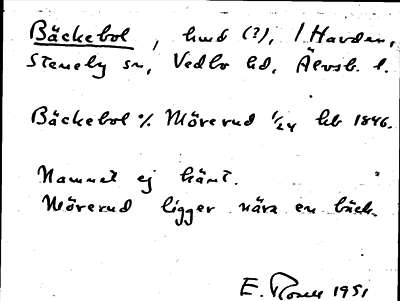 Bäckebol, hmd (?), / Havden,
Steneby sn, Vedbo hd, Älvsb. l.
Bäckebol % Mörerud 1/24 hb 1846.
Namnet ej känt.
Mörerud ligger nära en bäck.
E. Rosell 1951